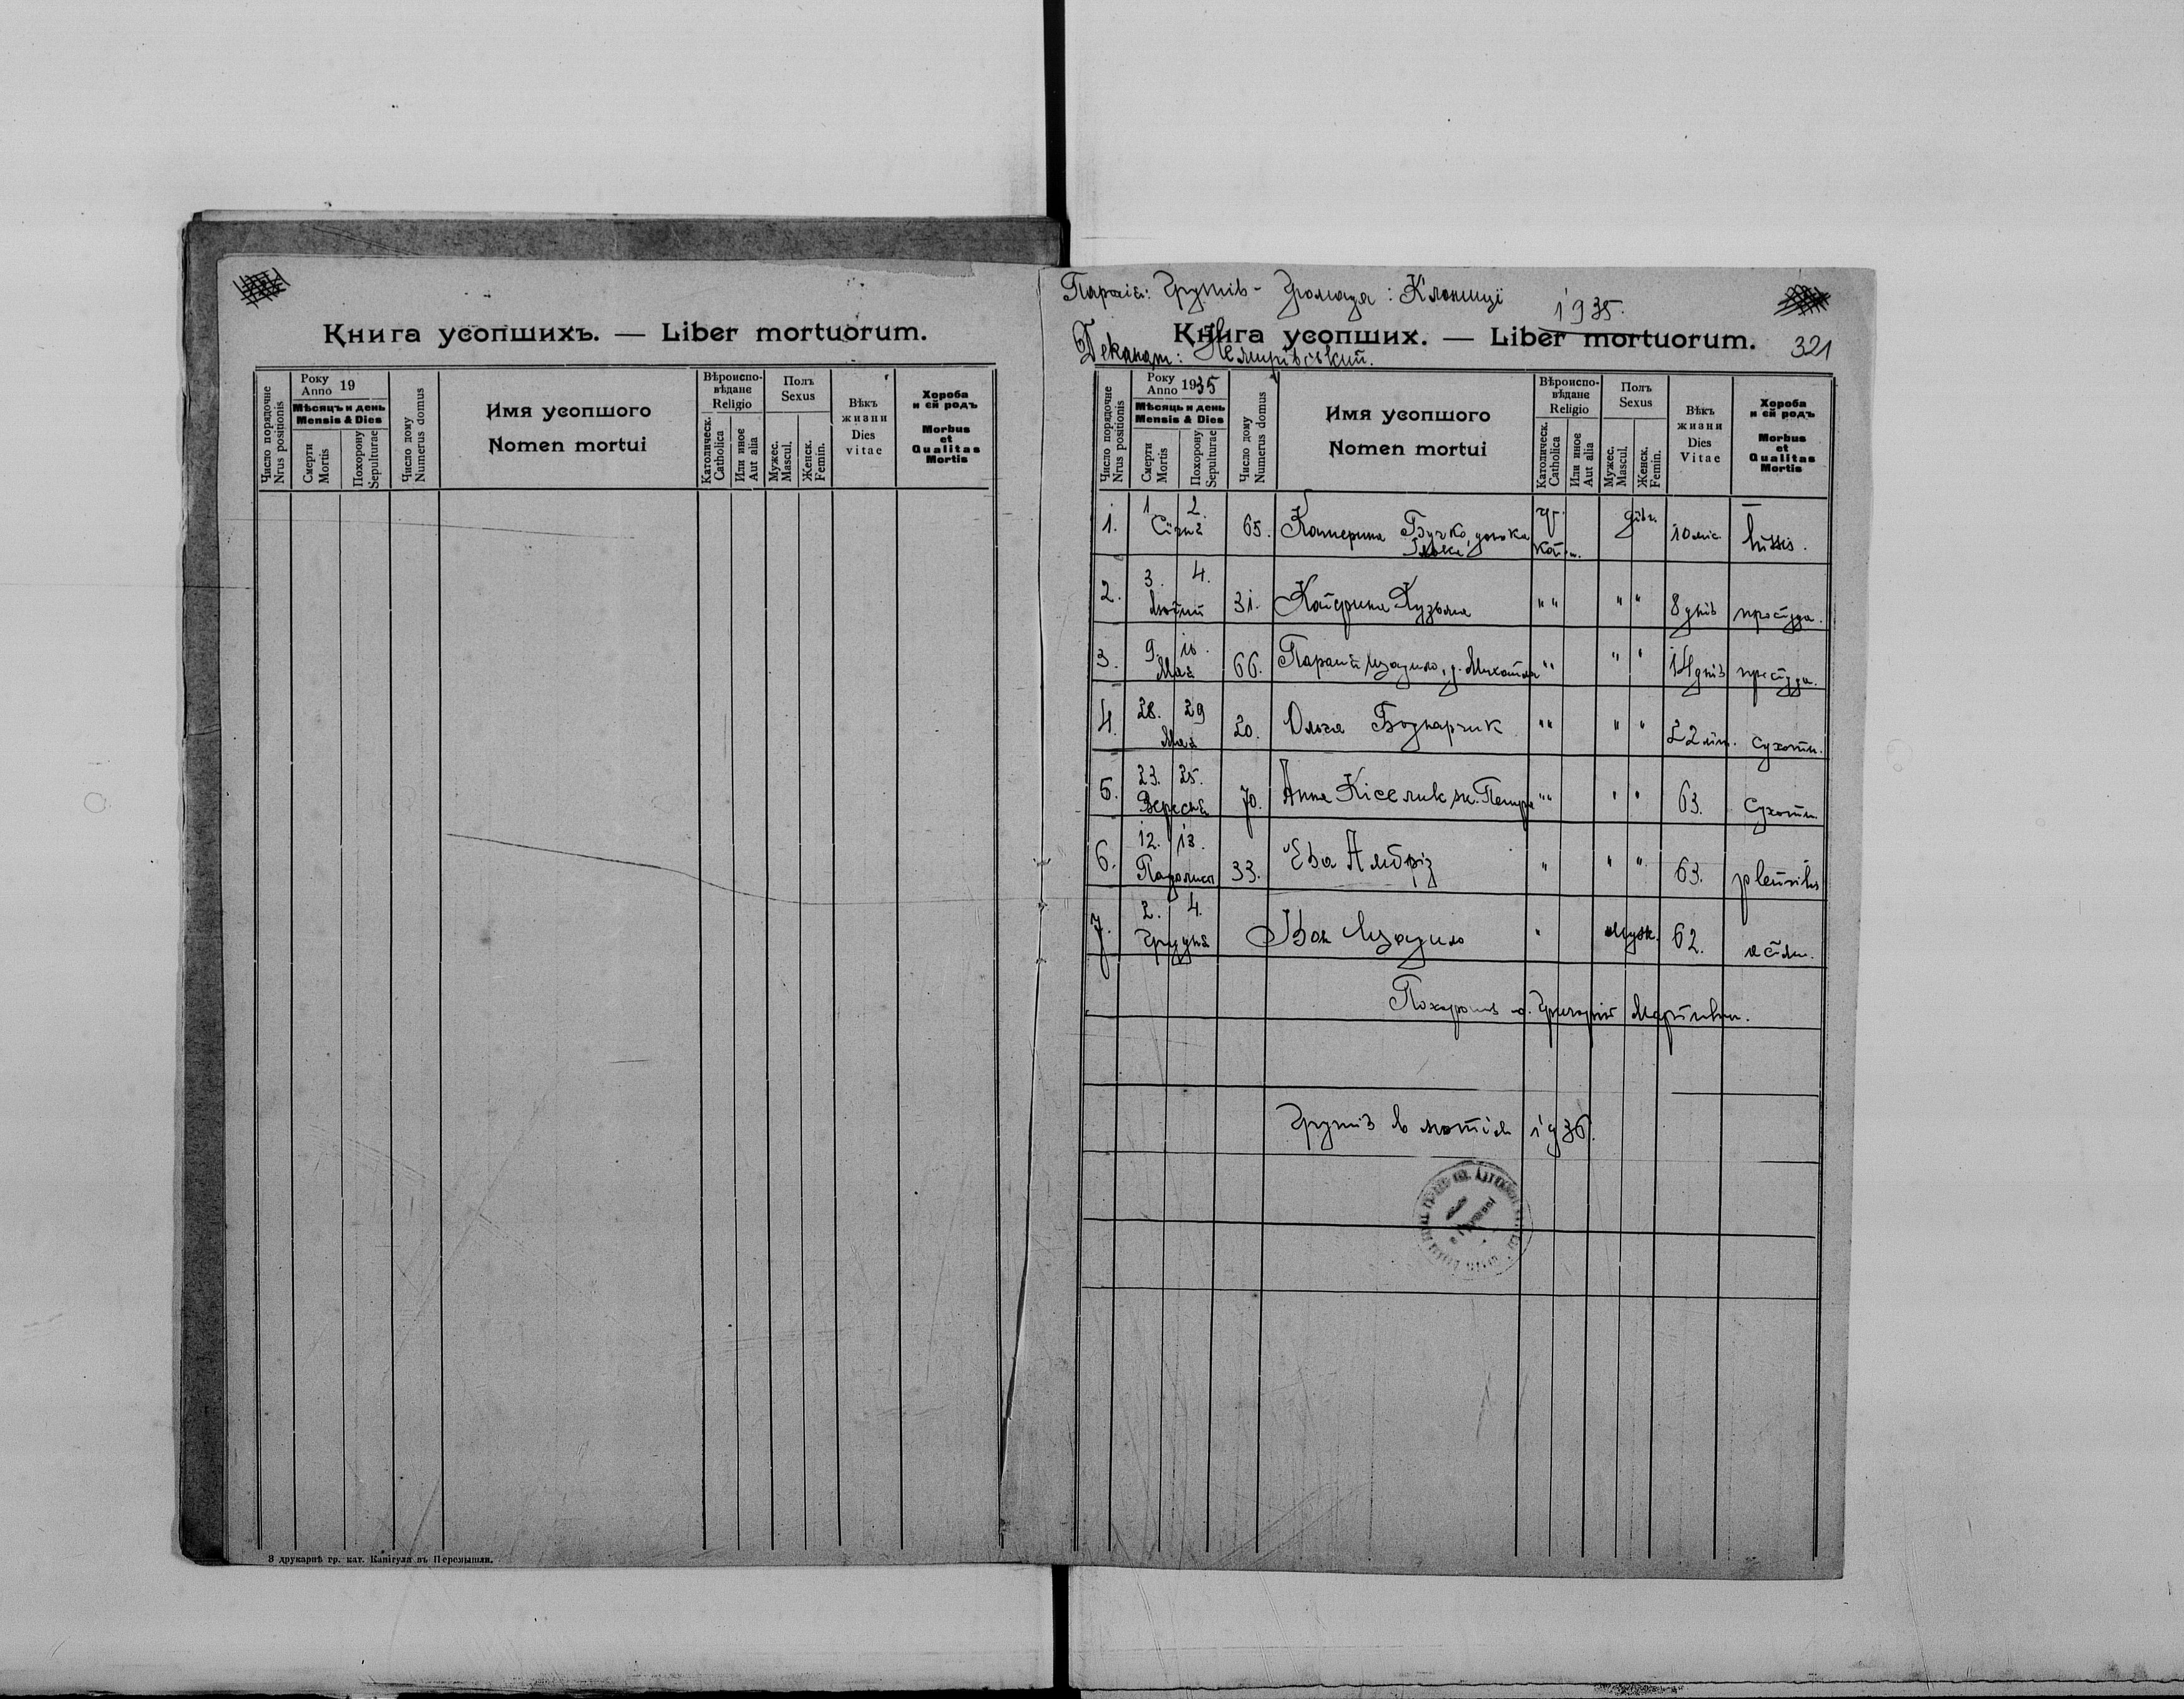 Книга усопшихъ. — Liber mortuorum.
Число порядочне
Nrus positionis
Року
Anno 19
Мѣсяцъ и день
Mensis & Dies
Смерти
Mortis
Похорону
Sepulturae
Число дому
Numerus domus
Имя усопшого
Nomen mortui
Вѣроиспо-
вѣдане
Religio
Католическ.
Catholica
Или иное
Aut alia
Полъ
Sexus
Мужес.
Mascul.
Женск.
Femin.
Вѣкъ
жизни
Dies
vitae
Хороба
и єй родъ
Morbus
et
Qualitas
Mortis
З друкарнѣ гр. кат. Капітули въ Перемышли.
Парохія: Грушів - Громада: Клониці
1935.
Книга усопших. — Liber mortuorum.
321
Деканат: Немирівський.
Число порядочне
Nrus positionis
Року
Anno 1935
Мѣсяць и день
Mensis & Dies
Смерти
Mortis
Похорону
Sepulturae
Число дому
Numerus domus
Имя усопшого
Nomen mortui
Вѣроиспо-
вѣдане
Religio
Католическ.
Catholica
Или иное
Aut alia
Полъ
Sexus
Мужес.
Mascul.
Женск.
Femin.
Вѣкъ
жизни
Dies
Vitae
Хороба
и єй родъ
Morbus
et
Qualitas
Mortis
1. 1. 2. Січня 65. Катерина Бучко, донька гр. кат. дівч. 10 міс. tussis.
2. 3. 4. Лютий 31. Катерина Кузьма " " " " 8 днів простуда.
3. 9. 10. Мая 66. Параня д. Михайла " " " " 14 днів простуда.
4. 28. 29 Мая 20. Ольга Боднарчик " " " " 22 літ. сухоти.
5. 23. 25. Вересня 70. Анна Кіселик ж. Петра " " " " 63. Сухоти
6. 12. 13. Падолист 33. Ева " " " 63. pleuritis
7. 2. 4. Грудня Іван " муж. 62. астм.
Похоронив о. Григорій
Грушів в лютім 1936.